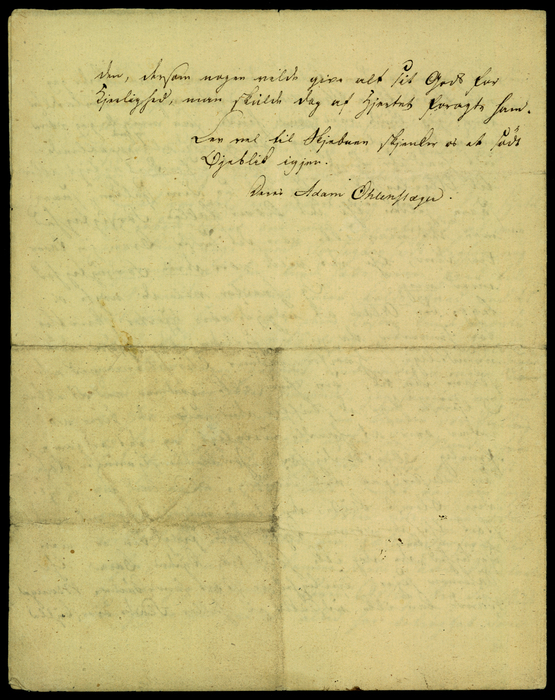 den, dersom nogen vilde give alt sit Gods for
Kjerlighed, man skulde dog af Hjertet foragte ham.
Lev vel til Skjebnen skjenker os et södt
Øjeblik igjen.
Deres Adam Øhlenslæger.